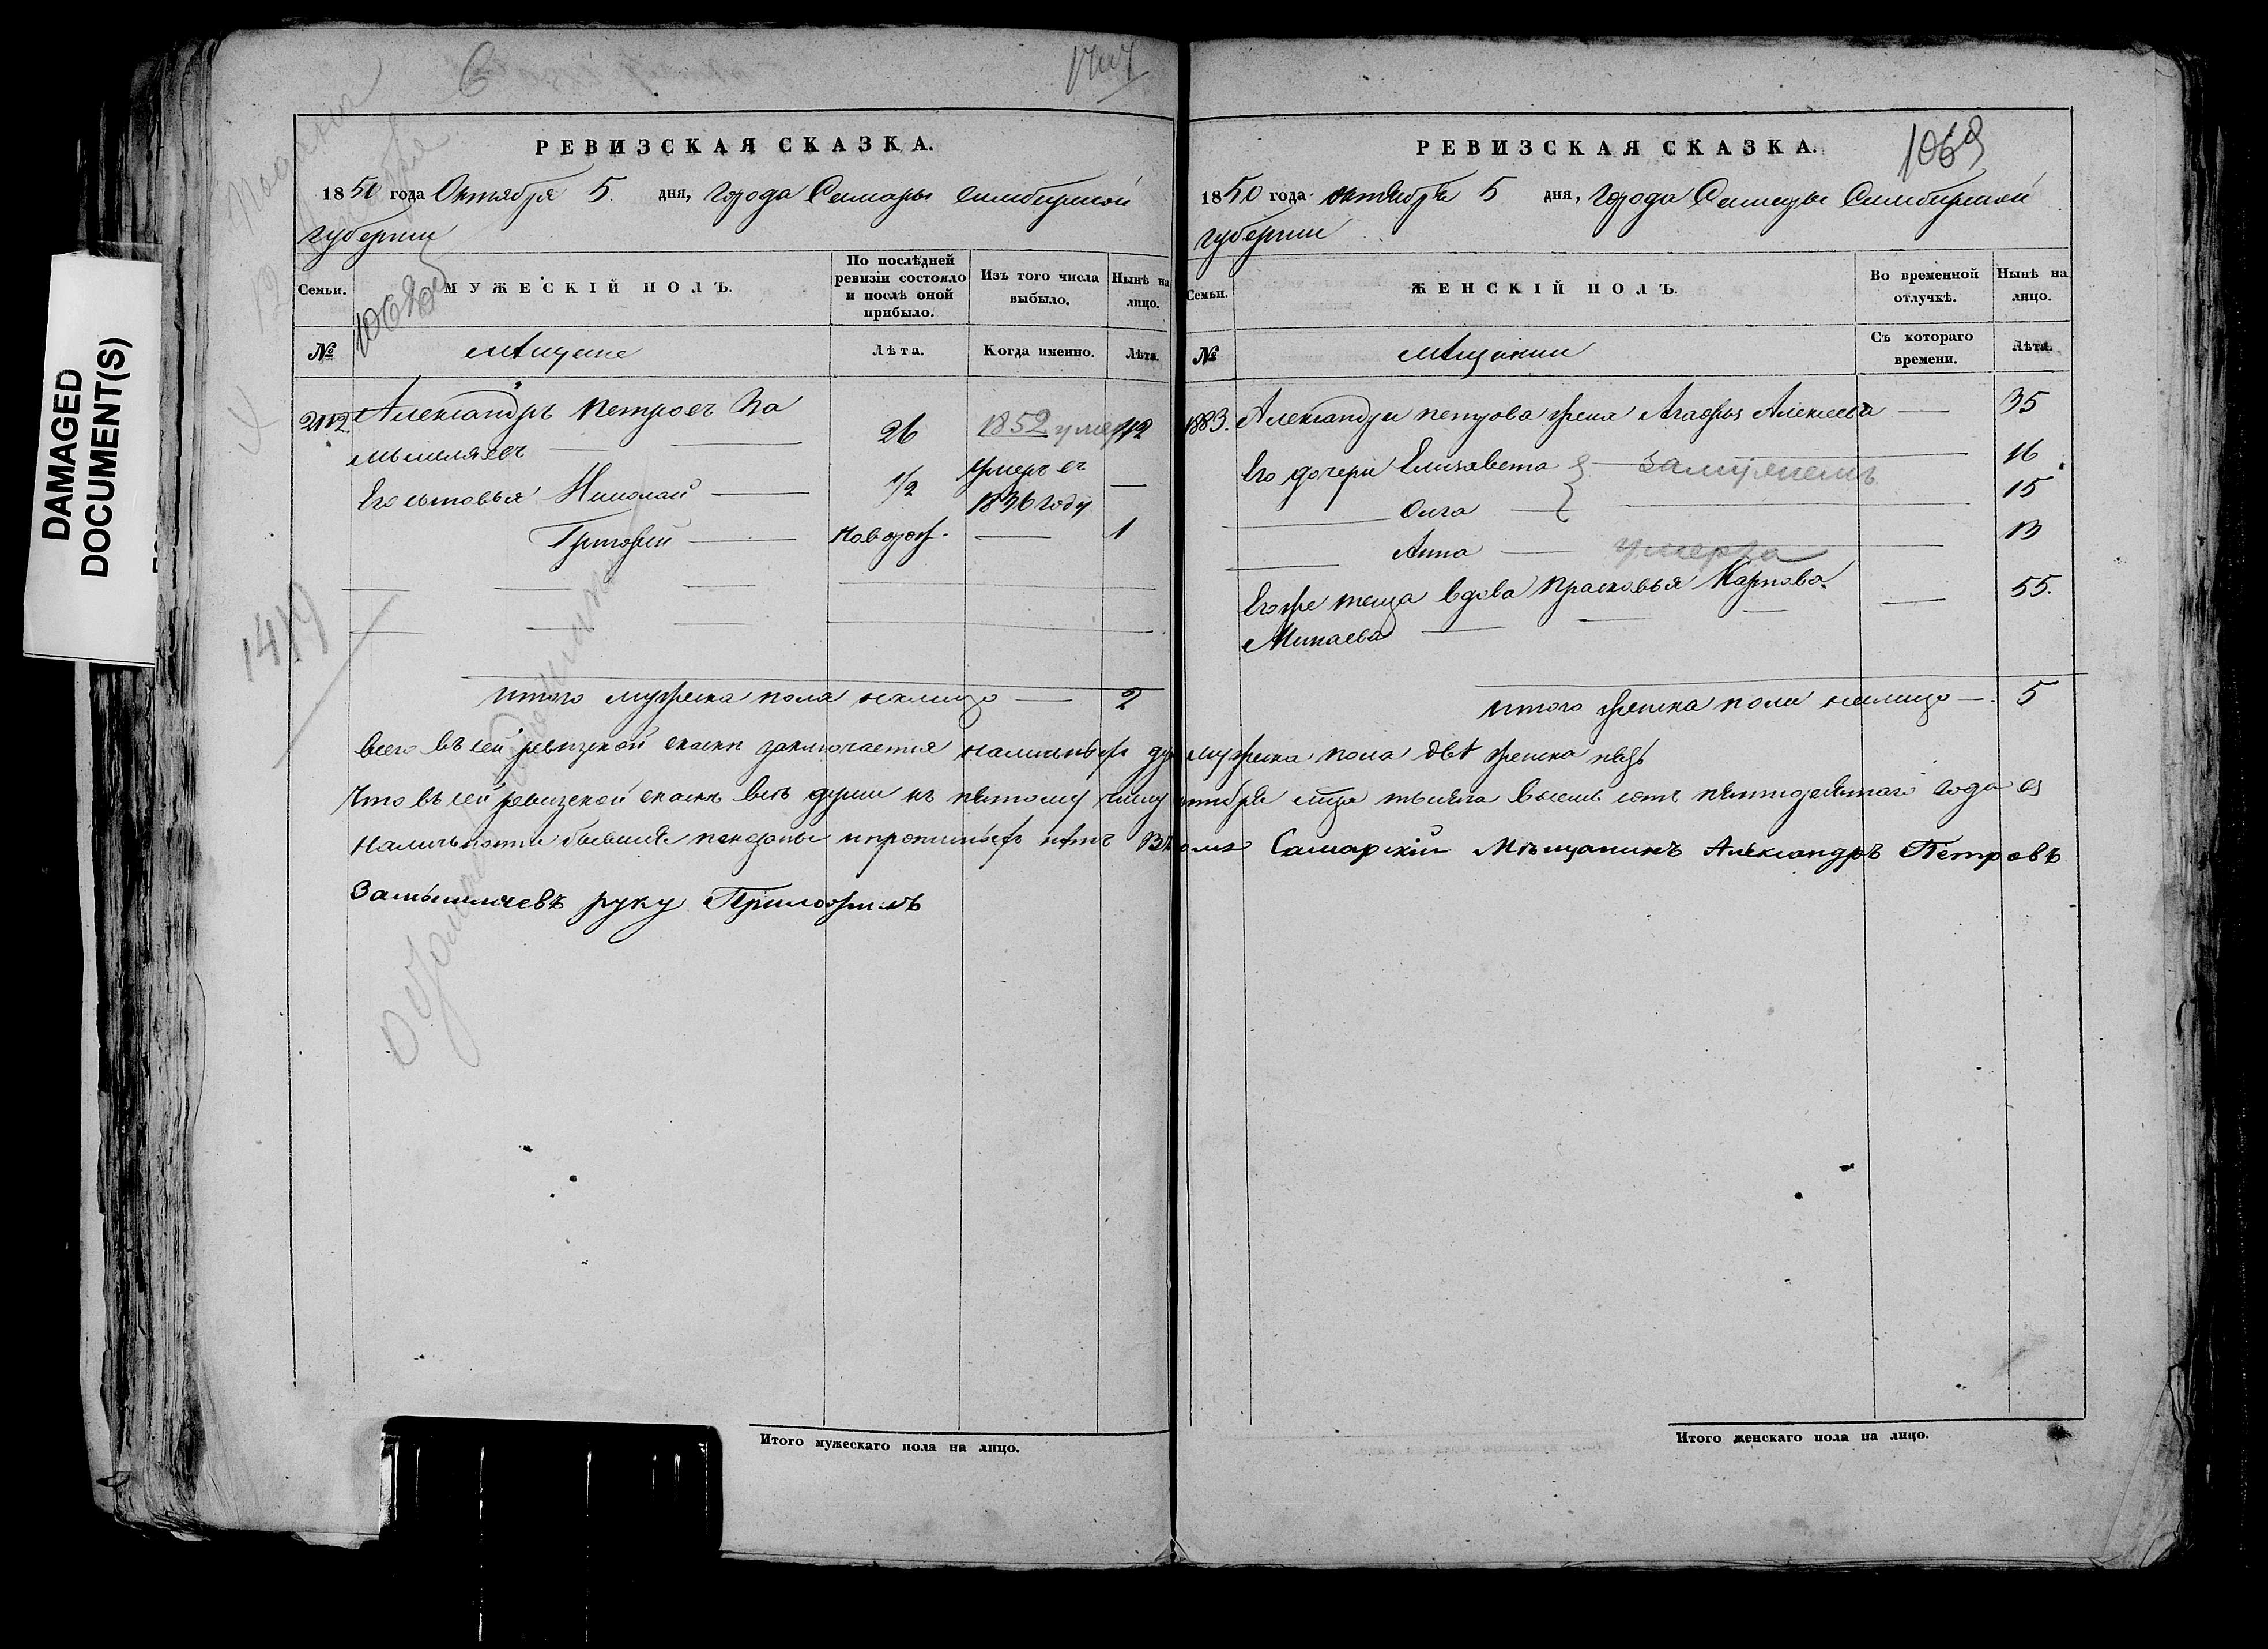 DAMAGED
DOCUMENT(S)
6
РЕВИЗСКАЯ СКАЗКА.
1850 года Октября 5. дня, Города Самары Симбирской
губернии
Семьи.
МУЖЕСКІЙ ПОЛЪ.
По послѣдней ревизіи состояло и послѣ оной прибыло.
Изъ того числа выбыло.
Нынѣ на лицо.
№
Мѣщане
Лѣта.
Когда именно.
Лѣта.
Александръ Петровъ За
мышляевъ
26
1852 умеръ
42
Его сыновья Николай
1/2
Умеръ въ
1836 году
Григорій
Новорож.
1
1417
итого мужеска пола налицо 2
РЕВИЗСКАЯ СКАЗКА.
1069
1850 года октября 5 дня, Города Самары Симбирской
губернии
Семьи.
ЖЕНСКІЙ ПОЛЪ.
Во временной отлучкѣ.
Нынѣ на лицо.
№
Мѣщанки
Съ котораго времени.
Лѣта.
1883. Александра петрова жена Агафья Алексеева 35
Его дочери Елизавета 16
замужемъ
Олга 15
Анна 13
умерла
Егоже теща вдова Прасковья Карпова 55.
Минаева
итого женска пола налицо 5
всего въ сей ревизской скаски заключается наличныхъ душ мужеска пола двѣ женска пять
Что въ сей ревизской скаски все души къ пятому числу октября мца тысяча восемь сотъ пятидесятаго года въ
наличности бывшия показаны и прописныхъ нѣтъ Въ томъ Самарскій Мѣщанинъ Александръ Петровъ
Замышляевъ руку Приложилъ
Итого мужескаго пола на лицо.
Итого женскаго пола на лицо.